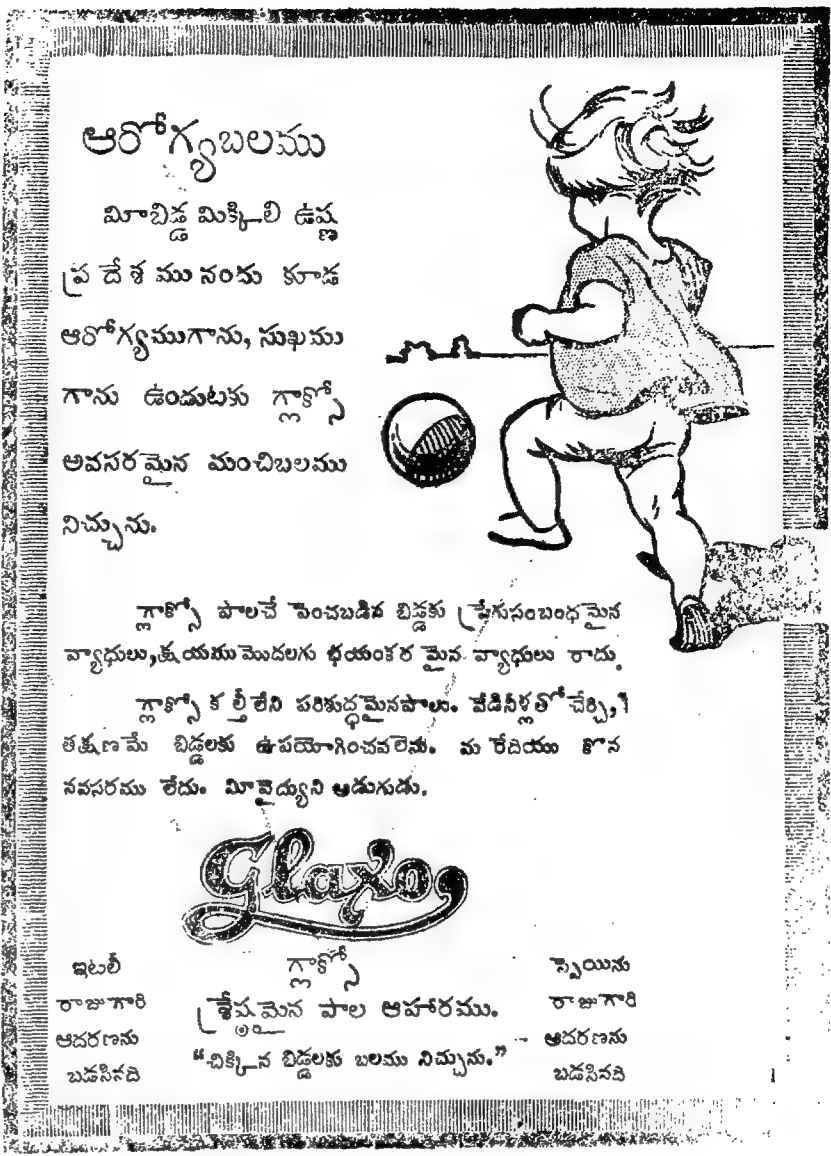 ఆరోగ్యబలము
మీబిడ్డ మిక్కిలి ఉష్ణ
ప్రదేశమునందు కూడ
ఆరోగ్యముగాను, సుఖము
గాను ఉండుటకు గ్లాక్సో
అవసరమైన మంచిబలము
నిచ్చును.
గ్లాక్సో పాలచే పెంచబడిన బిడ్డకు ప్రేగుసంబంధమైన
వ్యాధులు, క్షయము మొదలగు భయంకరమైన వ్యాధులు రాదు.
గ్లాక్సో కల్తీలేని పరిశుద్ధమైనపాలు. వేడినీళ్లతో చేర్చి,
తక్షణమే బిడ్డలకు ఉపయోగించవలెను. మరేదియు కొన
నవసరము లేదు. మీవైద్యుని అడుగుడు.
Glaxo
ఇటలీ
రాజుగారి
ఆదరణను
బడసినది
గ్లాక్సో
శ్రేష్ఠమైన పాల ఆహారము.
"చిక్కిన బిడ్డలకు బలము నిచ్చును."
స్పెయిను
రాజుగారి
ఆదరణను
బడసినది